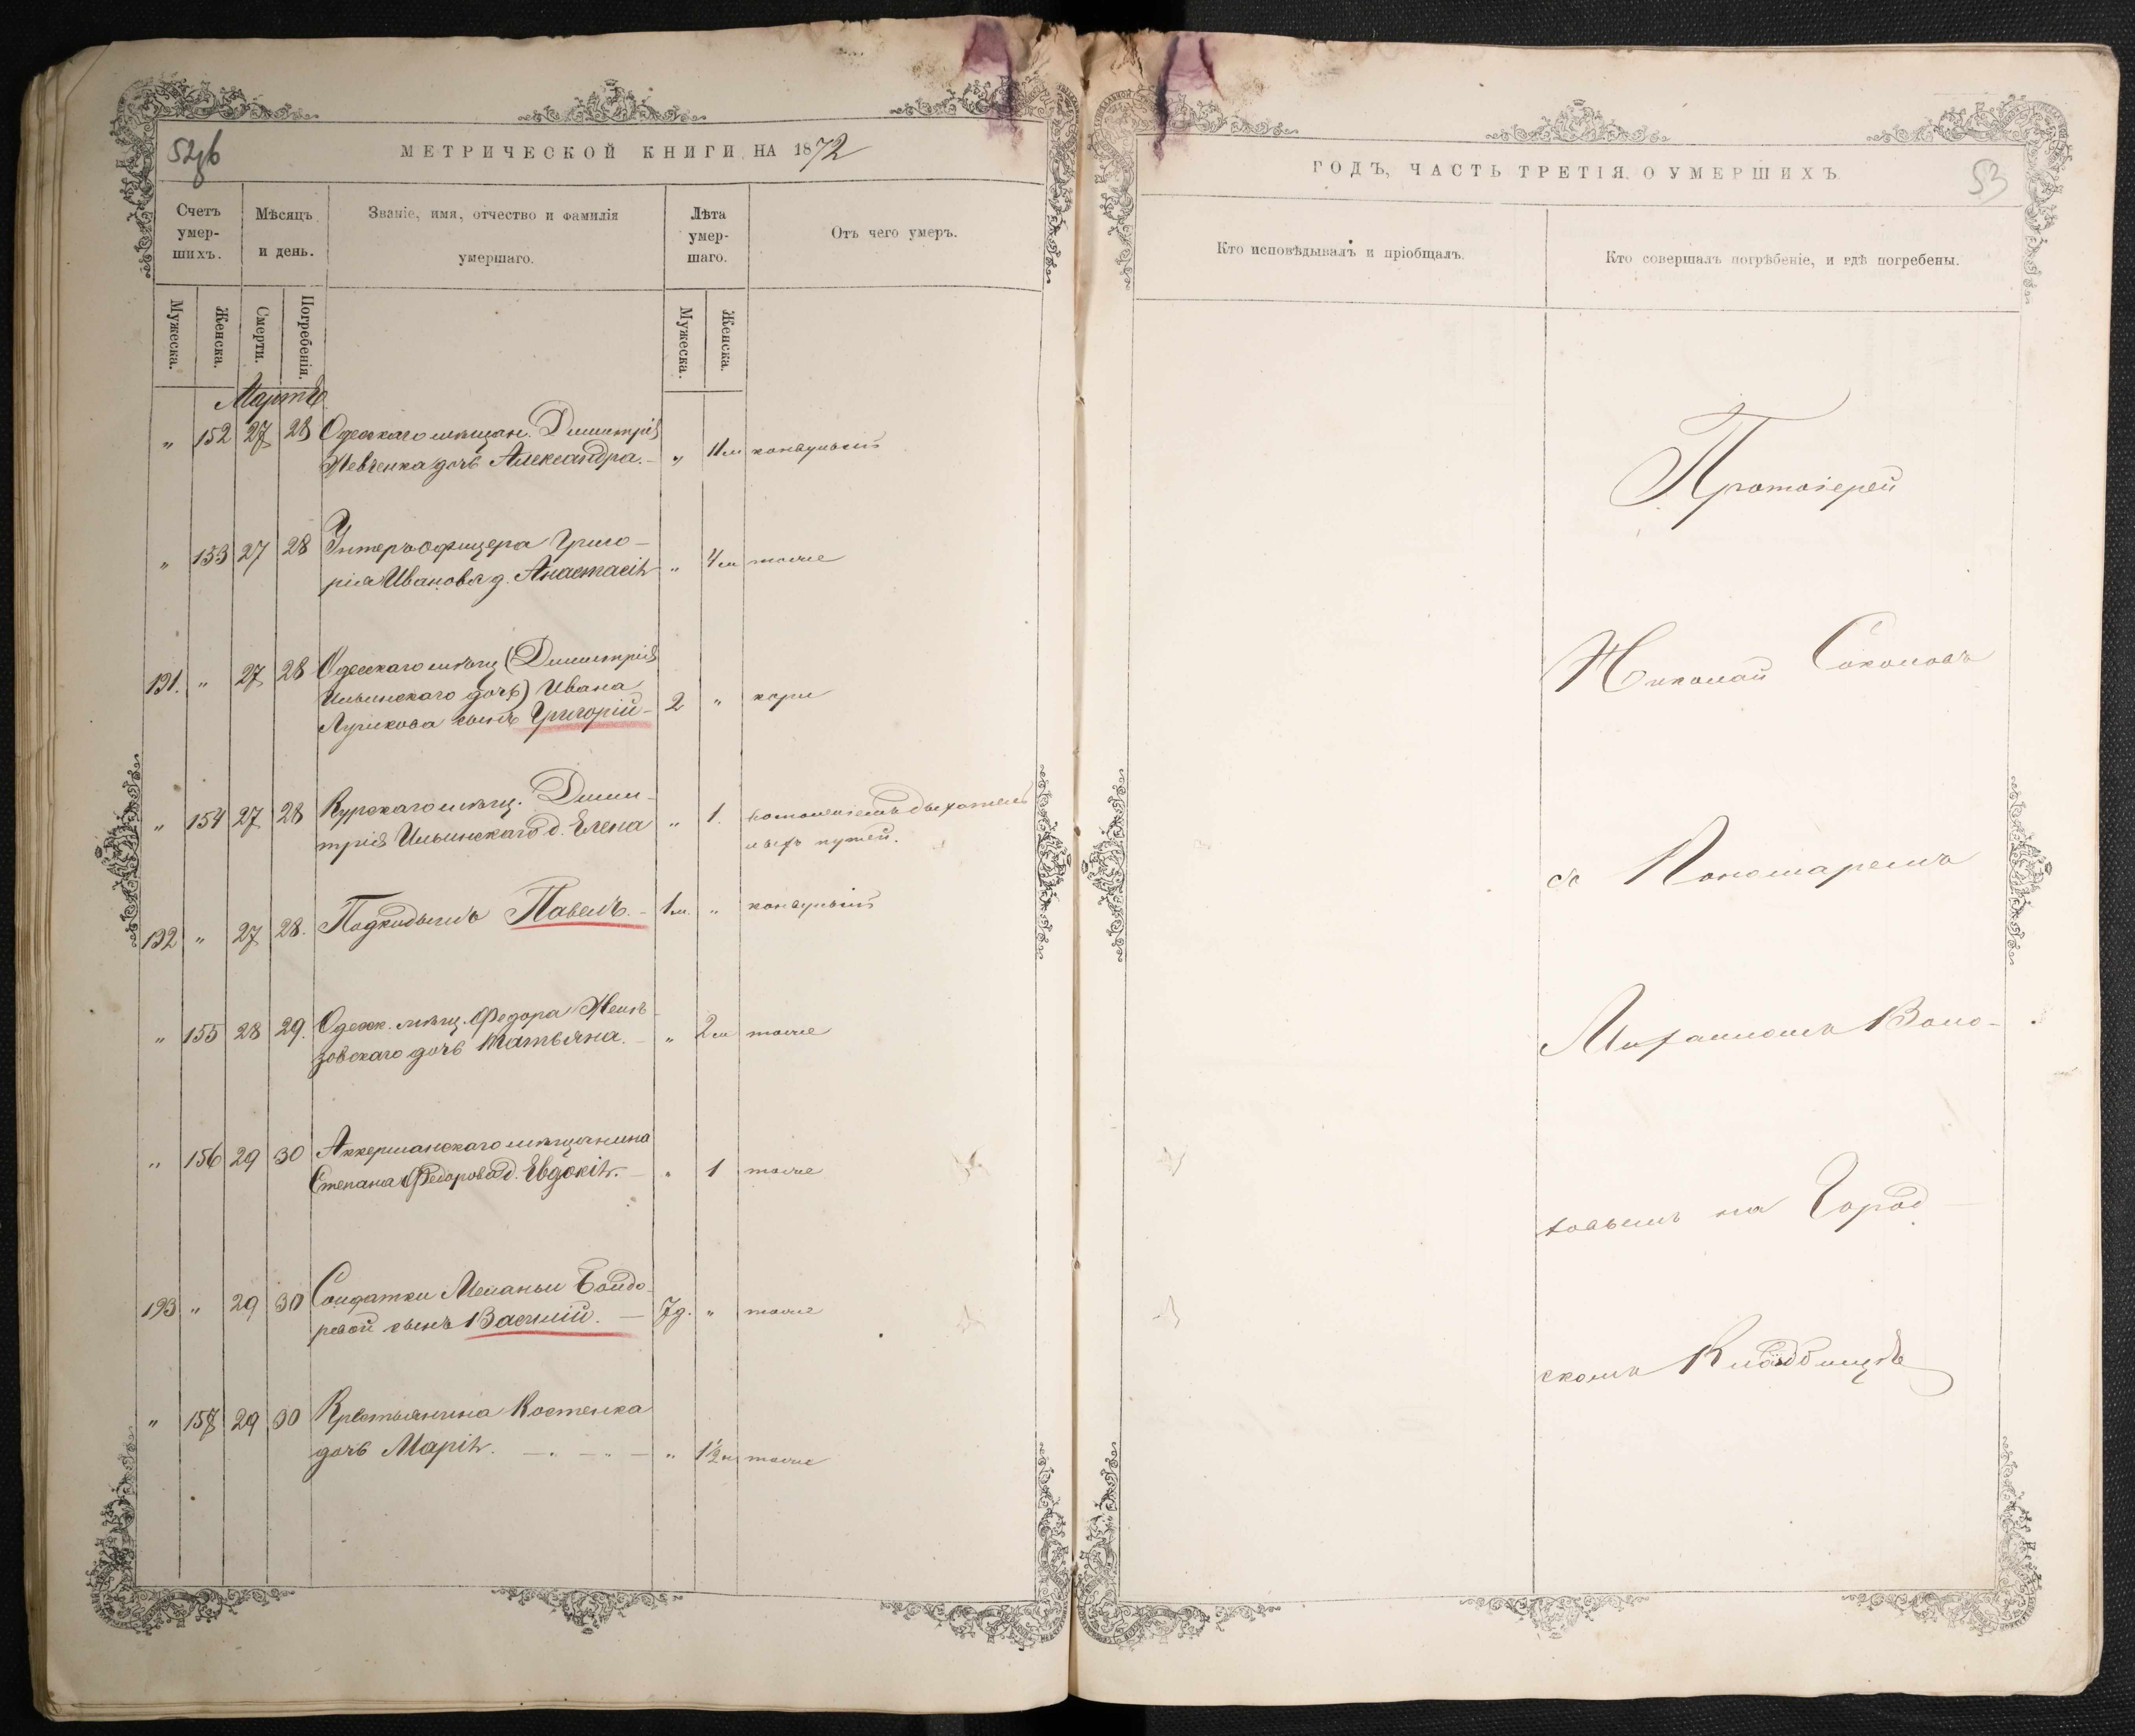 52зв
МЕТРИЧЕСКОЙ КНИГИ НА 1872
Счетъ умер-шихъ.
Мѣсяцъ и день.
Званіе, имя, отчество и фамилія умершаго.
Лѣта умер-шаго.
Отъ чего умеръ.
Мужеска.
Женска.
Смерти.
Погребенія.
Мужеска.
Женска.
Мартъ
„ 152 27 28 Одесскаго мѣщан. Димитрія
Шевченка дочь Александра. „ 11м конвульсій
„ 153 27 28 Унтеръ офицера Григо-
рія Иванова д. Анастасія „ 4м тоже
191. „ 27 28 Одесскаго мѣщ (Димитрія
Ильинскаго дочь) Ивана
Лучкова сынъ Григорій 2 „ кори
„ 154 27 28 Курскаго мѣщ. Дими-
трія Ильинскаго д. Елена „ 1. дыхатель
ныхъ путей.
192 „ 27 28. Подкидышъ Павелъ. 1м. „ конвульсій
„ 155 28 29. Одесск. мѣщ. Федора
зовскаго дочь Татьяна. „ 2м тоже
„ 156 29 30 Аккерманскаго мѣщанина
Степана Федорова д. Евдокія. „ 1 тоже
193 „ 29 30 Солдатки Меланьи Бондо-
ревой сынъ Василій. 7д. „ тоже
„ 157 29 30 Крестьянина Костенка
дочь Марія. „ 1½м тоже
ГОДЪ, ЧАСТЬ ТРЕТІЯ О УМЕРШИХЪ
53
Кто исповѣдывалъ и пріобщалъ.
Кто совершалъ погрѣбеніе, и гдѣ погребены.
Протоіерей
Николай Соколовъ
съ Пономаремъ
Михаиломъ Воло-
ховымъ на Город-
скомъ Кладбищѣ